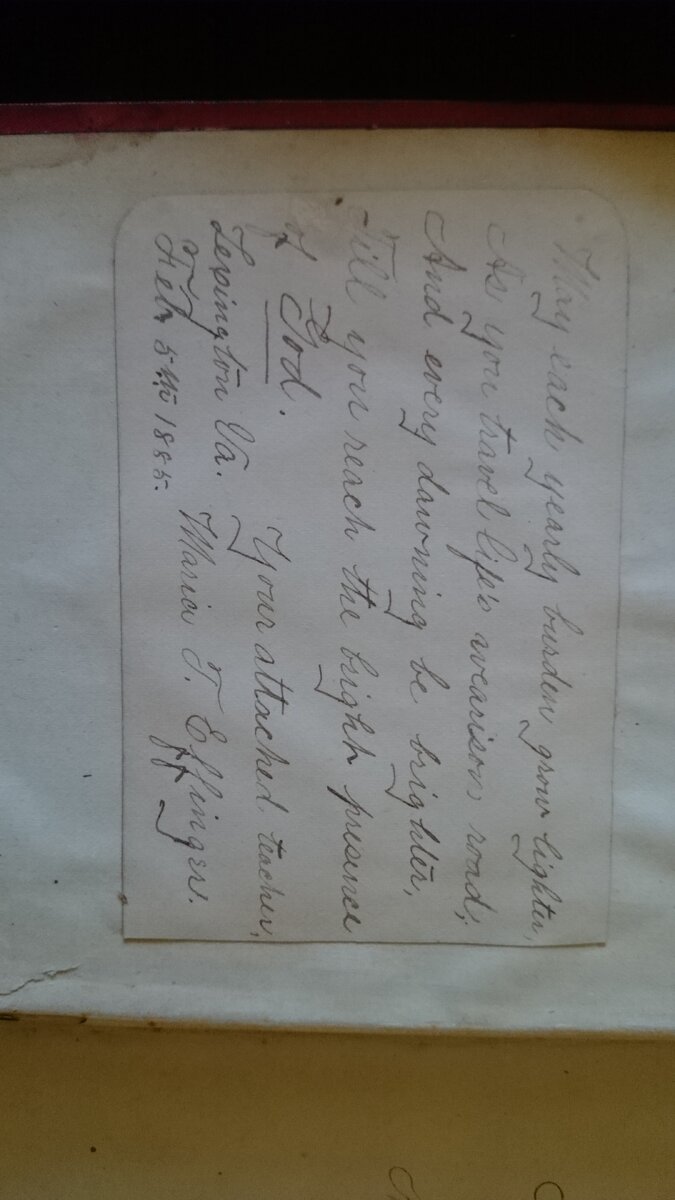 May each yearly burden grow lighter,
As you travel life's wearisom road;
And every dawning be brighter,
Till you reach the bright presence
of God.
Your attached teacher,
Lexington Va. Maria T. Effinger.
Feb 5th 1885.